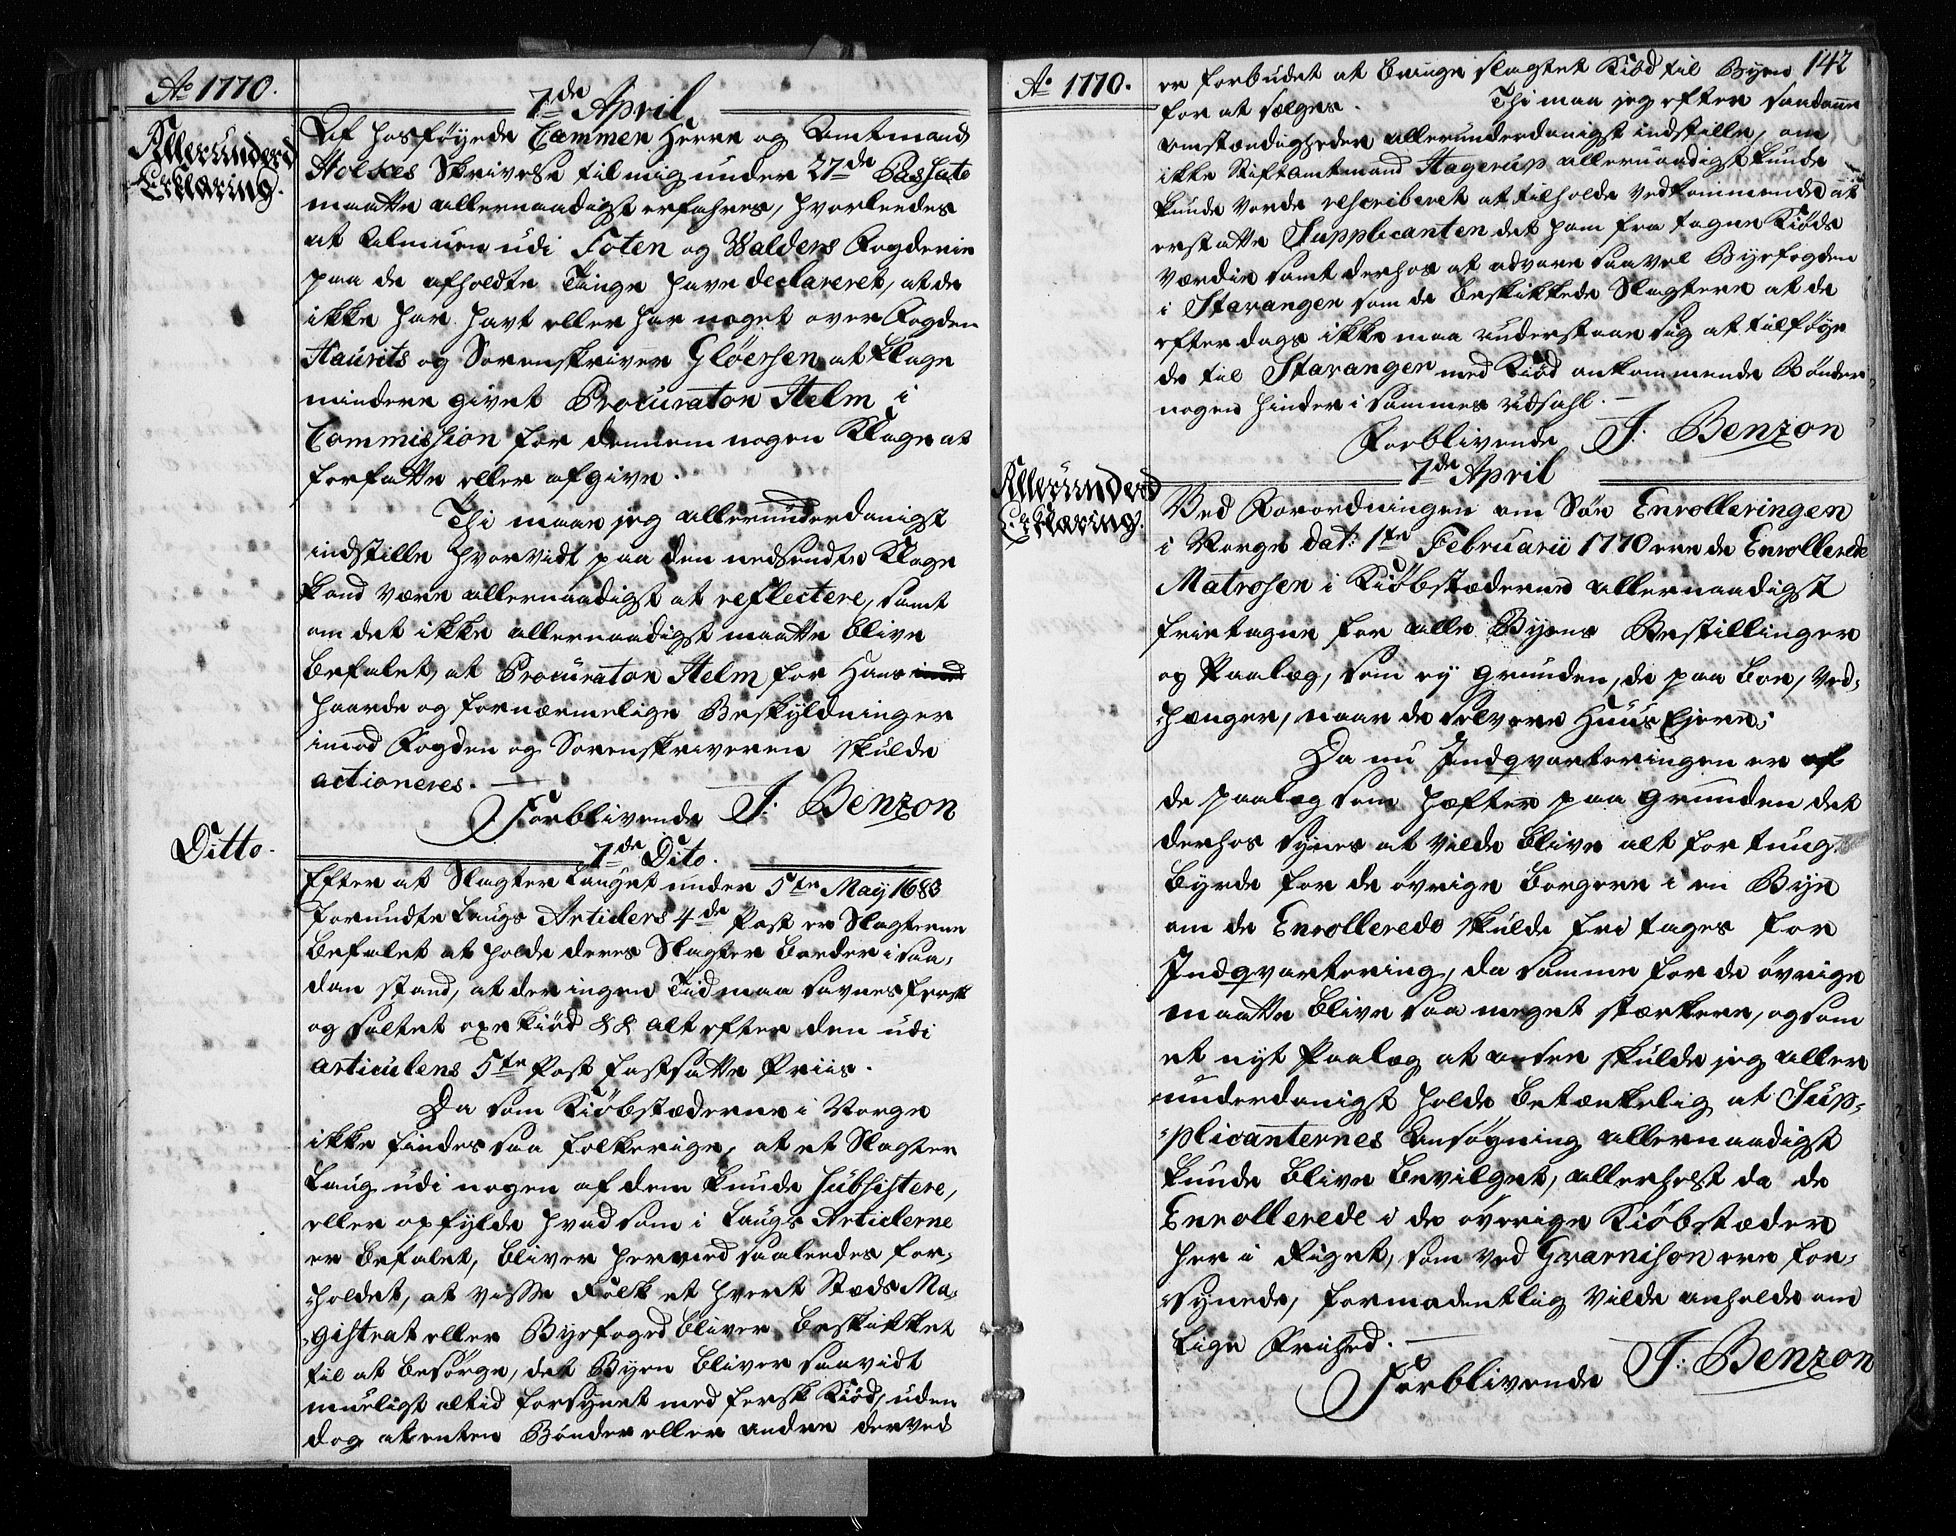 Ao 1770.
7de April
Allerunderd
Erklæring.
Af hosføyede Cammer Herre og Amtmand
Holckes Skrivelse til mig under 27de Passato
maatte allernaadigst erfahres, hvorleedes
at Almuen udi Toten og Walders Fogderie
paa de afholdte Tinge have declareret, at de
ikke har havt eller har noget over Fogden
Haurits og Sorenskriver Gløersen at klage
mindre givet Procurator Helm i
Commission for dennem nogen Klage at
forfatte eller afgive.
Thi maae jeg allerunderdanigst
indstille hvorvidt paa den nedsendte Klage
kand være allernaadigst at reflectere, samt
om det ikke allernaadigst maatte blive
befalet, at Procurator Helm for Hans
haarde og fornærmelige Beskyldninger
imod Fogden og Sorenskriveren skulde
actioneres.
Forblivende J: Benzon
Ditto.
7de Dito.
Efter at Slagter Lauget under 5te May 1683
forundte Laugs Articlers 4de Post er Slagterne
befalet at holde deres Slagter Boeder i saa-
dan stand, at der ingen Tiid maa savnes fersk
og saltet oxe kiød && alt efter den udi
articulens 5te Post fastsatte Priis.
Da som Kiøbstæderne i Norge
ikke findes saa folkerige, at et Slagter
Laug udi nogen af dem kunde subsistere,
eller opfylde hvad som i Laugs Articlerne
er befalet, bliver herved saaleedes for-
holdet, at visse Folk et hvert Stæds Ma-
gistrat eller Byefoged bliver beskikket
til at besørge, det Byen bliver saavidt
mueligt altid forsynet med fersk Kiød, uden
dog at enten Bønder eller andre derved
Ao 1770.
142
er forbudet at bringe slagtet Kiød til Byen
for at sælges. Thi maa jeg efter saadanne
omstændigheder allerunderdanigst indstille, om
ikke Stiftamtmand Hagerup allernaadigst kunde
kunde vorde rescriberet at tilholde vedkommende at
erstatte Supplicanten det ham fra tagne Kiøds
Værdie samt derhos at advare saavel Byefogden
i Stavanger som de beskikkede Slagtere at de
efter dags ikke maa understaae sig at tilføye
de til Stavanger med Kiød ankommende Bønder
nogen hinder i sammes udsahl.
Forblivende J: Benzon
7de April
Allerunderd
Erklæring.
Ved Forordningen om Søe Enrolleringen
i Norge dat: 1te Februarii 1770 ere de Enrollerede
Matroser i Kiøbstæderne allernaadigst
frietagne for alle Byens Bestillinger
og Paalæg, som ey Grunden, de paa boe, ved-
hænger, naar de selv ere Huus Ejere;
Da nu Indqvarteringen er af
de paalæg som hæfter paa Grunden det
derhos synes at vilde blive alt for tung
Byrde for de øvrige Borgere i en Bye
om de Enrollerede skulde fri tages for
Indqvartering, da samme for de øvrige
maatte blive saa meget stærkere, og som
et nyt Paalæg at ansee skulde jeg aller
underdanigst holde betænkelig at Sup-
plicanternes Ansøgning allernaadigst
kunde blive bevilget, allerhelst da de
Enrollerede i de øvrige Kiøbstæder
her i Riget, som ved Gvarnison ere for-
synede, formodentlig vilde anholde om
lige Frihed.
Forblivende J: Benzon